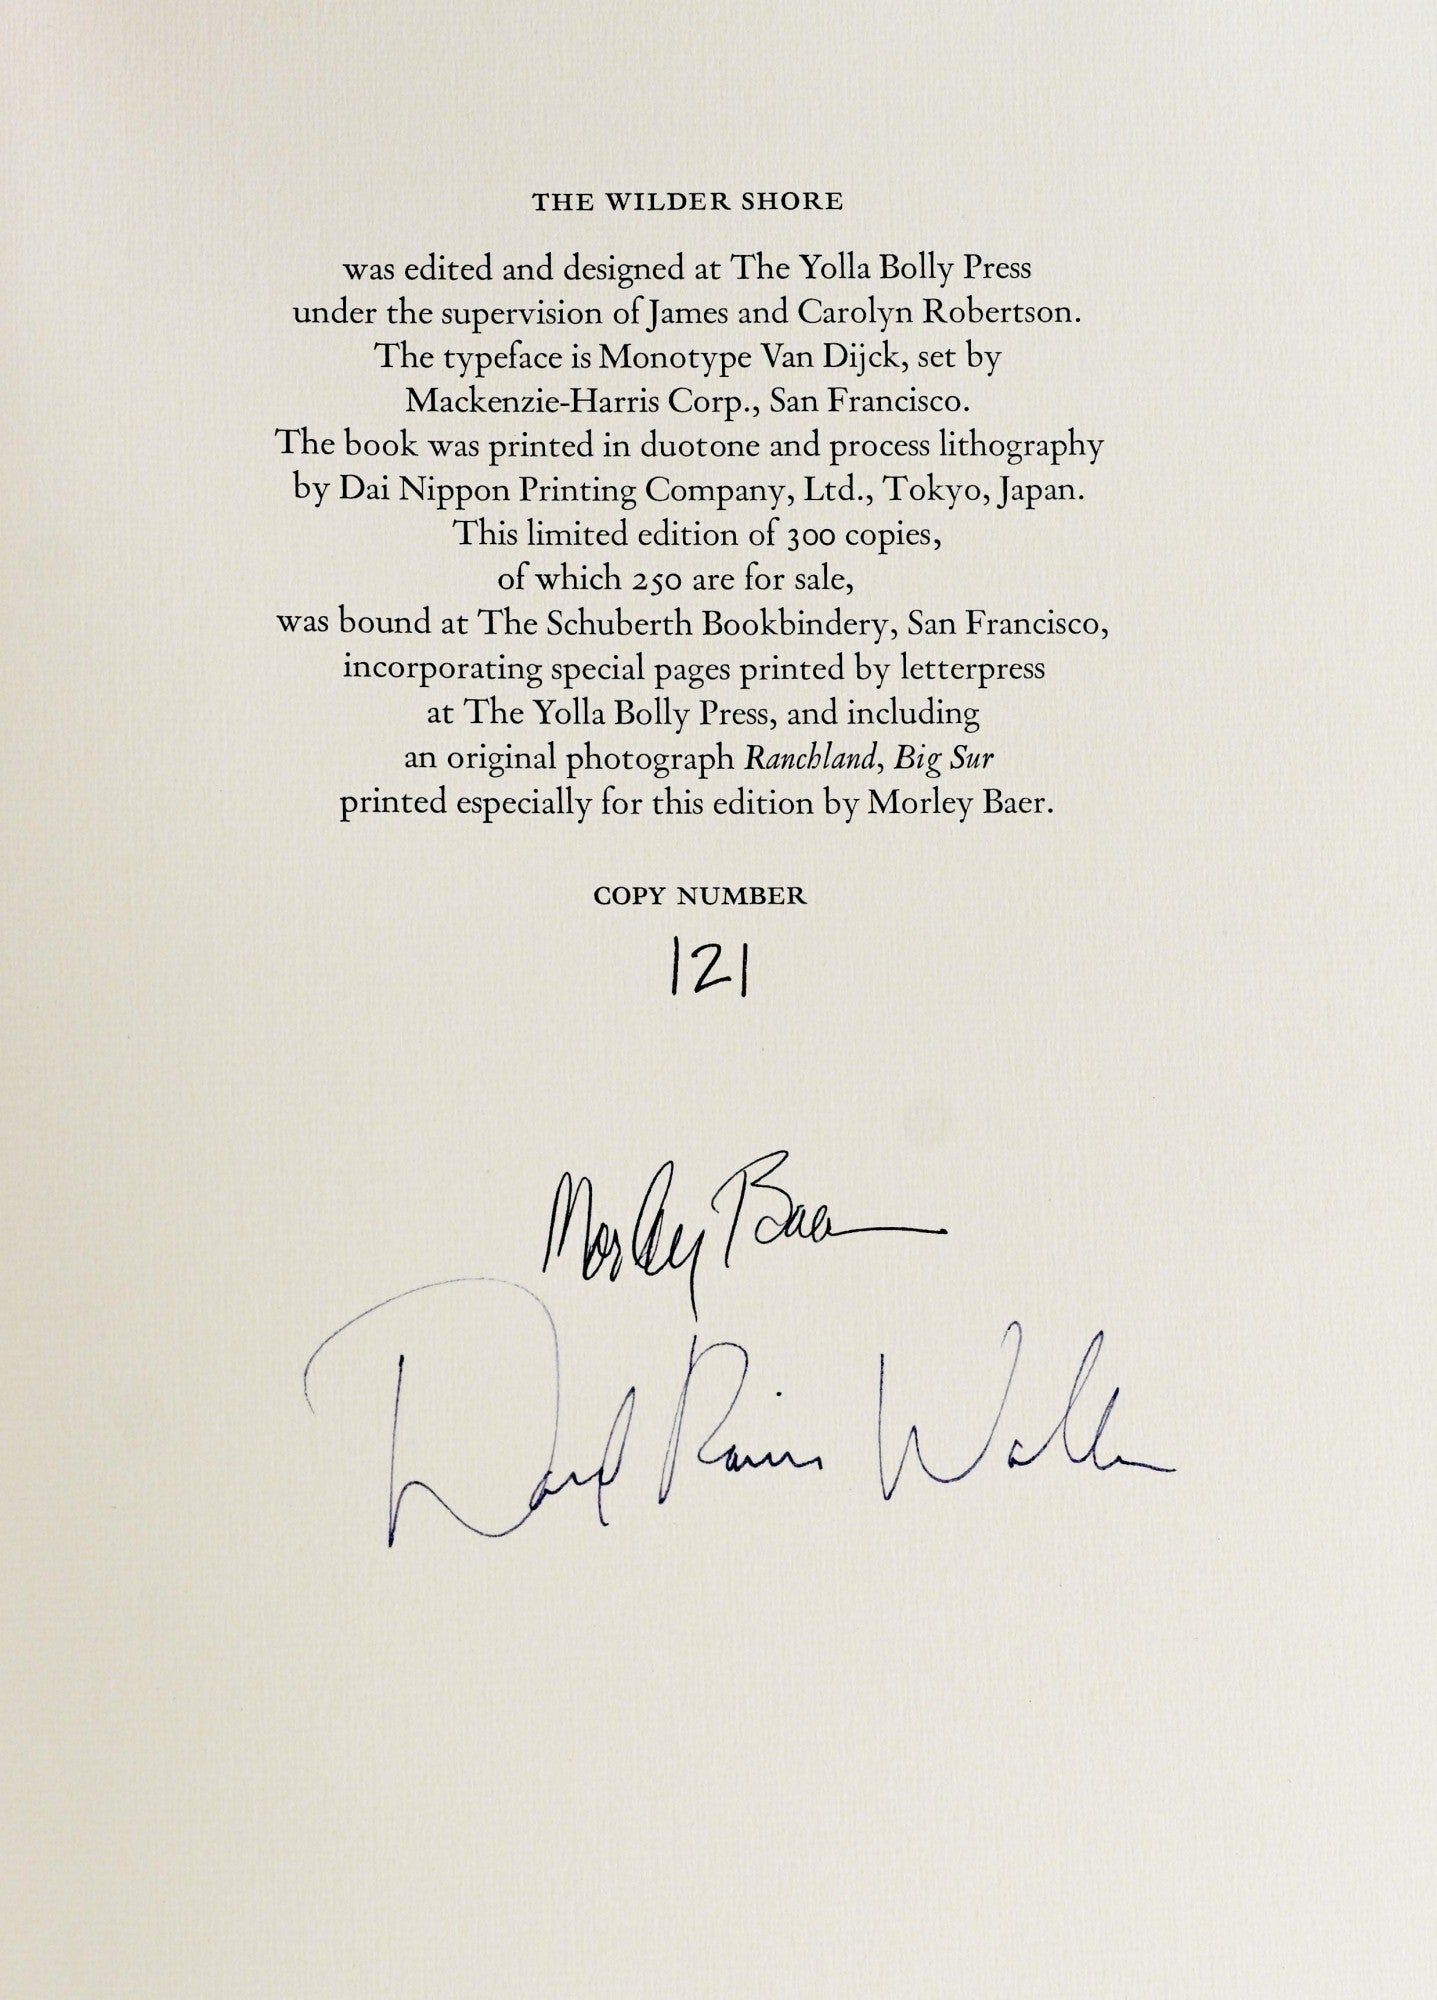 THE WILDER SHORE
was edited and designed at The Yolla Bolly Press
under the supervision of James and Carolyn Robertson.
The typeface is Monotype Van Dijck, set by
Mackenzie-Harris Corp., San Francisco.
The book was printed in duotone and process lithography
by Dai Nippon Printing Company, Ltd., Tokyo, Japan.
This limited edition of 300 copies,
of which 250 are for sale,
was bound at The Schuberth Bookbindery, San Francisco,
incorporating special pages printed by letterpress
at The Yolla Bolly Press, and including
an original photograph Ranchland, Big Sur
printed especially for this edition by Morley Baer.
COPY NUMBER
121
Morley Baer
David Rains Wallace